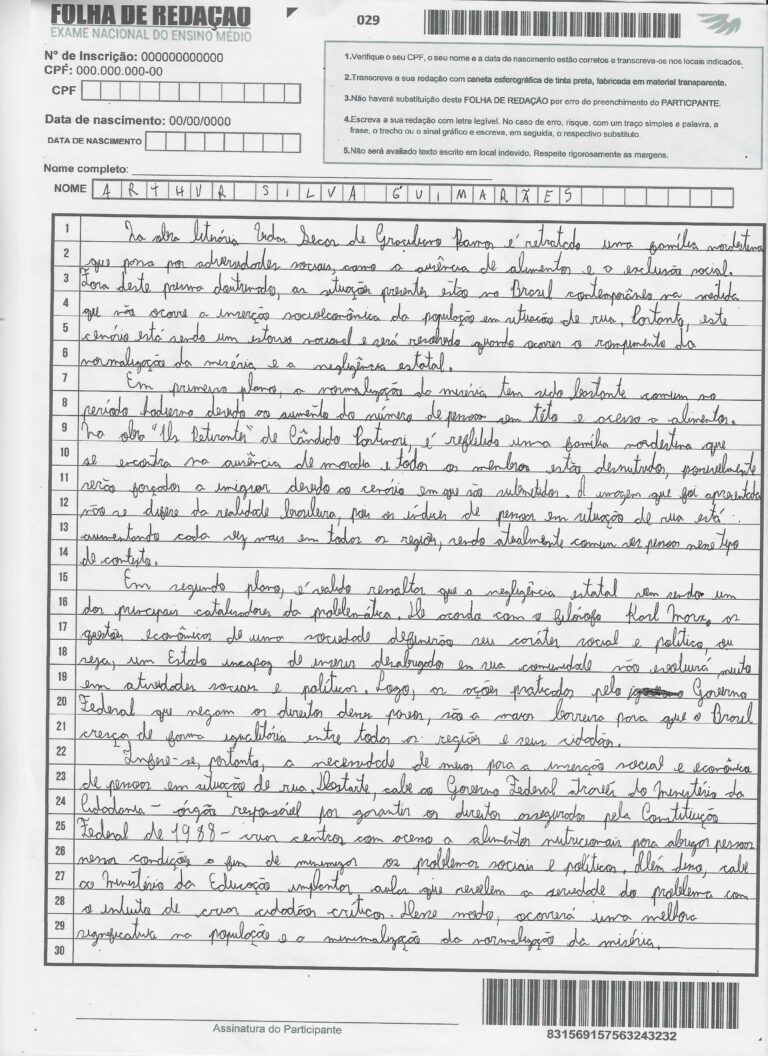 FOLHA DE REDAÇÃO
EXAME NACIONAL DO ENSINO MÉDIO
029
Nº de Inscrição: 000000000000
CPF: 000.000.000-00
CPF
Data de nascimento: 00/00/0000
DATA DE NASCIMENTO
1.Verifique o seu CPF, o seu nome e a data de nascimento estão corretos e transcreva-os nos locais indicados.
2.Transcreva a sua redação com caneta esferográfica de tinta preta, fabricada em material transparente.
3.Não haverá substituição desta FOLHA DE REDAÇÃO por erro de preenchimento do PARTICPANTE.
4.Escreva a sua redação com letra legível. No caso de erro, risque, com um traço simples a palavra, a
frase, o trecho ou o sinal gráfico e escreva, em seguida, o respectivo substituto.
5.Não será avaliado texto escrito em local indevido. Respeite rigorosamente as margens.
Nome completo:
NOME ARTHUR SILVA GUIMARÃES
1 Na obra literária Vidas Secas de Graciliano Ramos é retratado uma família nordestina
2 que passa por adversidades sociais, como a ausência de alimentos e a exclusão social.
3 Fora deste prisma doutrinado, as situações presentes estão no Brasil contemporâneo na medida
4 que não ocorre a inserção socioeconômica da população em situação de rua. Portanto, este
5 cenário está sendo um estorvo nacional e será resolvido quando ocorrer o rompimento da
6 normalização da miséria e a negligência estatal.
7 Em primeiro plano, a normalização da miséria tem sido bastante comum no
8 período hodierno devido ao aumento do número de pessoas sem teto e acesso a alimentos.
9 Na obra "Os Retirantes" de Cândido Portinari, é refletido uma família nordestina que
10 se encontra na ausência de moradia e todos os membros estão desnutridos, possivelmente
11 serão forçados a emigrar devido ao cenário em que são submetidos. A imagem que foi apresentada
12 não se difere da realidade brasileira, pois os índices de pessoas em situação de rua está
13 aumentando cada vez mais em todas as regiões, sendo atualmente comum ver pessoas nesse tipo
14 de contexto.
15 Em segundo plano, é valido ressaltar que a negligência estatal vem sendo um
16 dos principais catalisadores da problemática. De acordo com o filósofo Karl Marx, as
17 questões econômicas de uma sociedade definirão seu caráter social e político, ou
18 seja, um Estado incapaz de inserir desabrigados em sua comunidade não evoluirá muito
19 em atividades sociais e políticas. Logo, as ações praticadas pelo Governo
20 Federal que negam os direitos desses povos, são a maior barreira para que o Brasil
21 cresça de forma igualitória entre todas as regiões e seus cidadãos.
22 Infere-se, portanto, a necessidade de meios para a inserção social e econômica
23 de pessoas em situação de rua. Destarte, cabe ao Governo Federal através do Ministério da
24 Cidadania - órgão responsável por garantir os direitos assegurados pela Constituição
25 Federal de 1988 - criar centros com acesso a alimentos nutricionais para abrigar pessoas
26 nessas condições a fim de minimizar os problemas sociais e políticos. Além disso, cabe
27 ao Ministério da Educação implantar aulas que revelem a seriedade do problema com
28 o intuito de criar cidadãos críticos. Desse modo, ocorrerá uma melhora
29 significativa na população e a minimalização da normalização da miséria.
30
Assinatura do Participante
831569157563243232